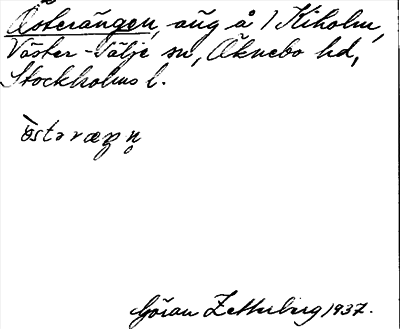 Österängen, äng å 1 Kiholm,
Väster-Tälje sn, Öknebo hd,
Stockholms l.
Göran Zetterberg 1937.